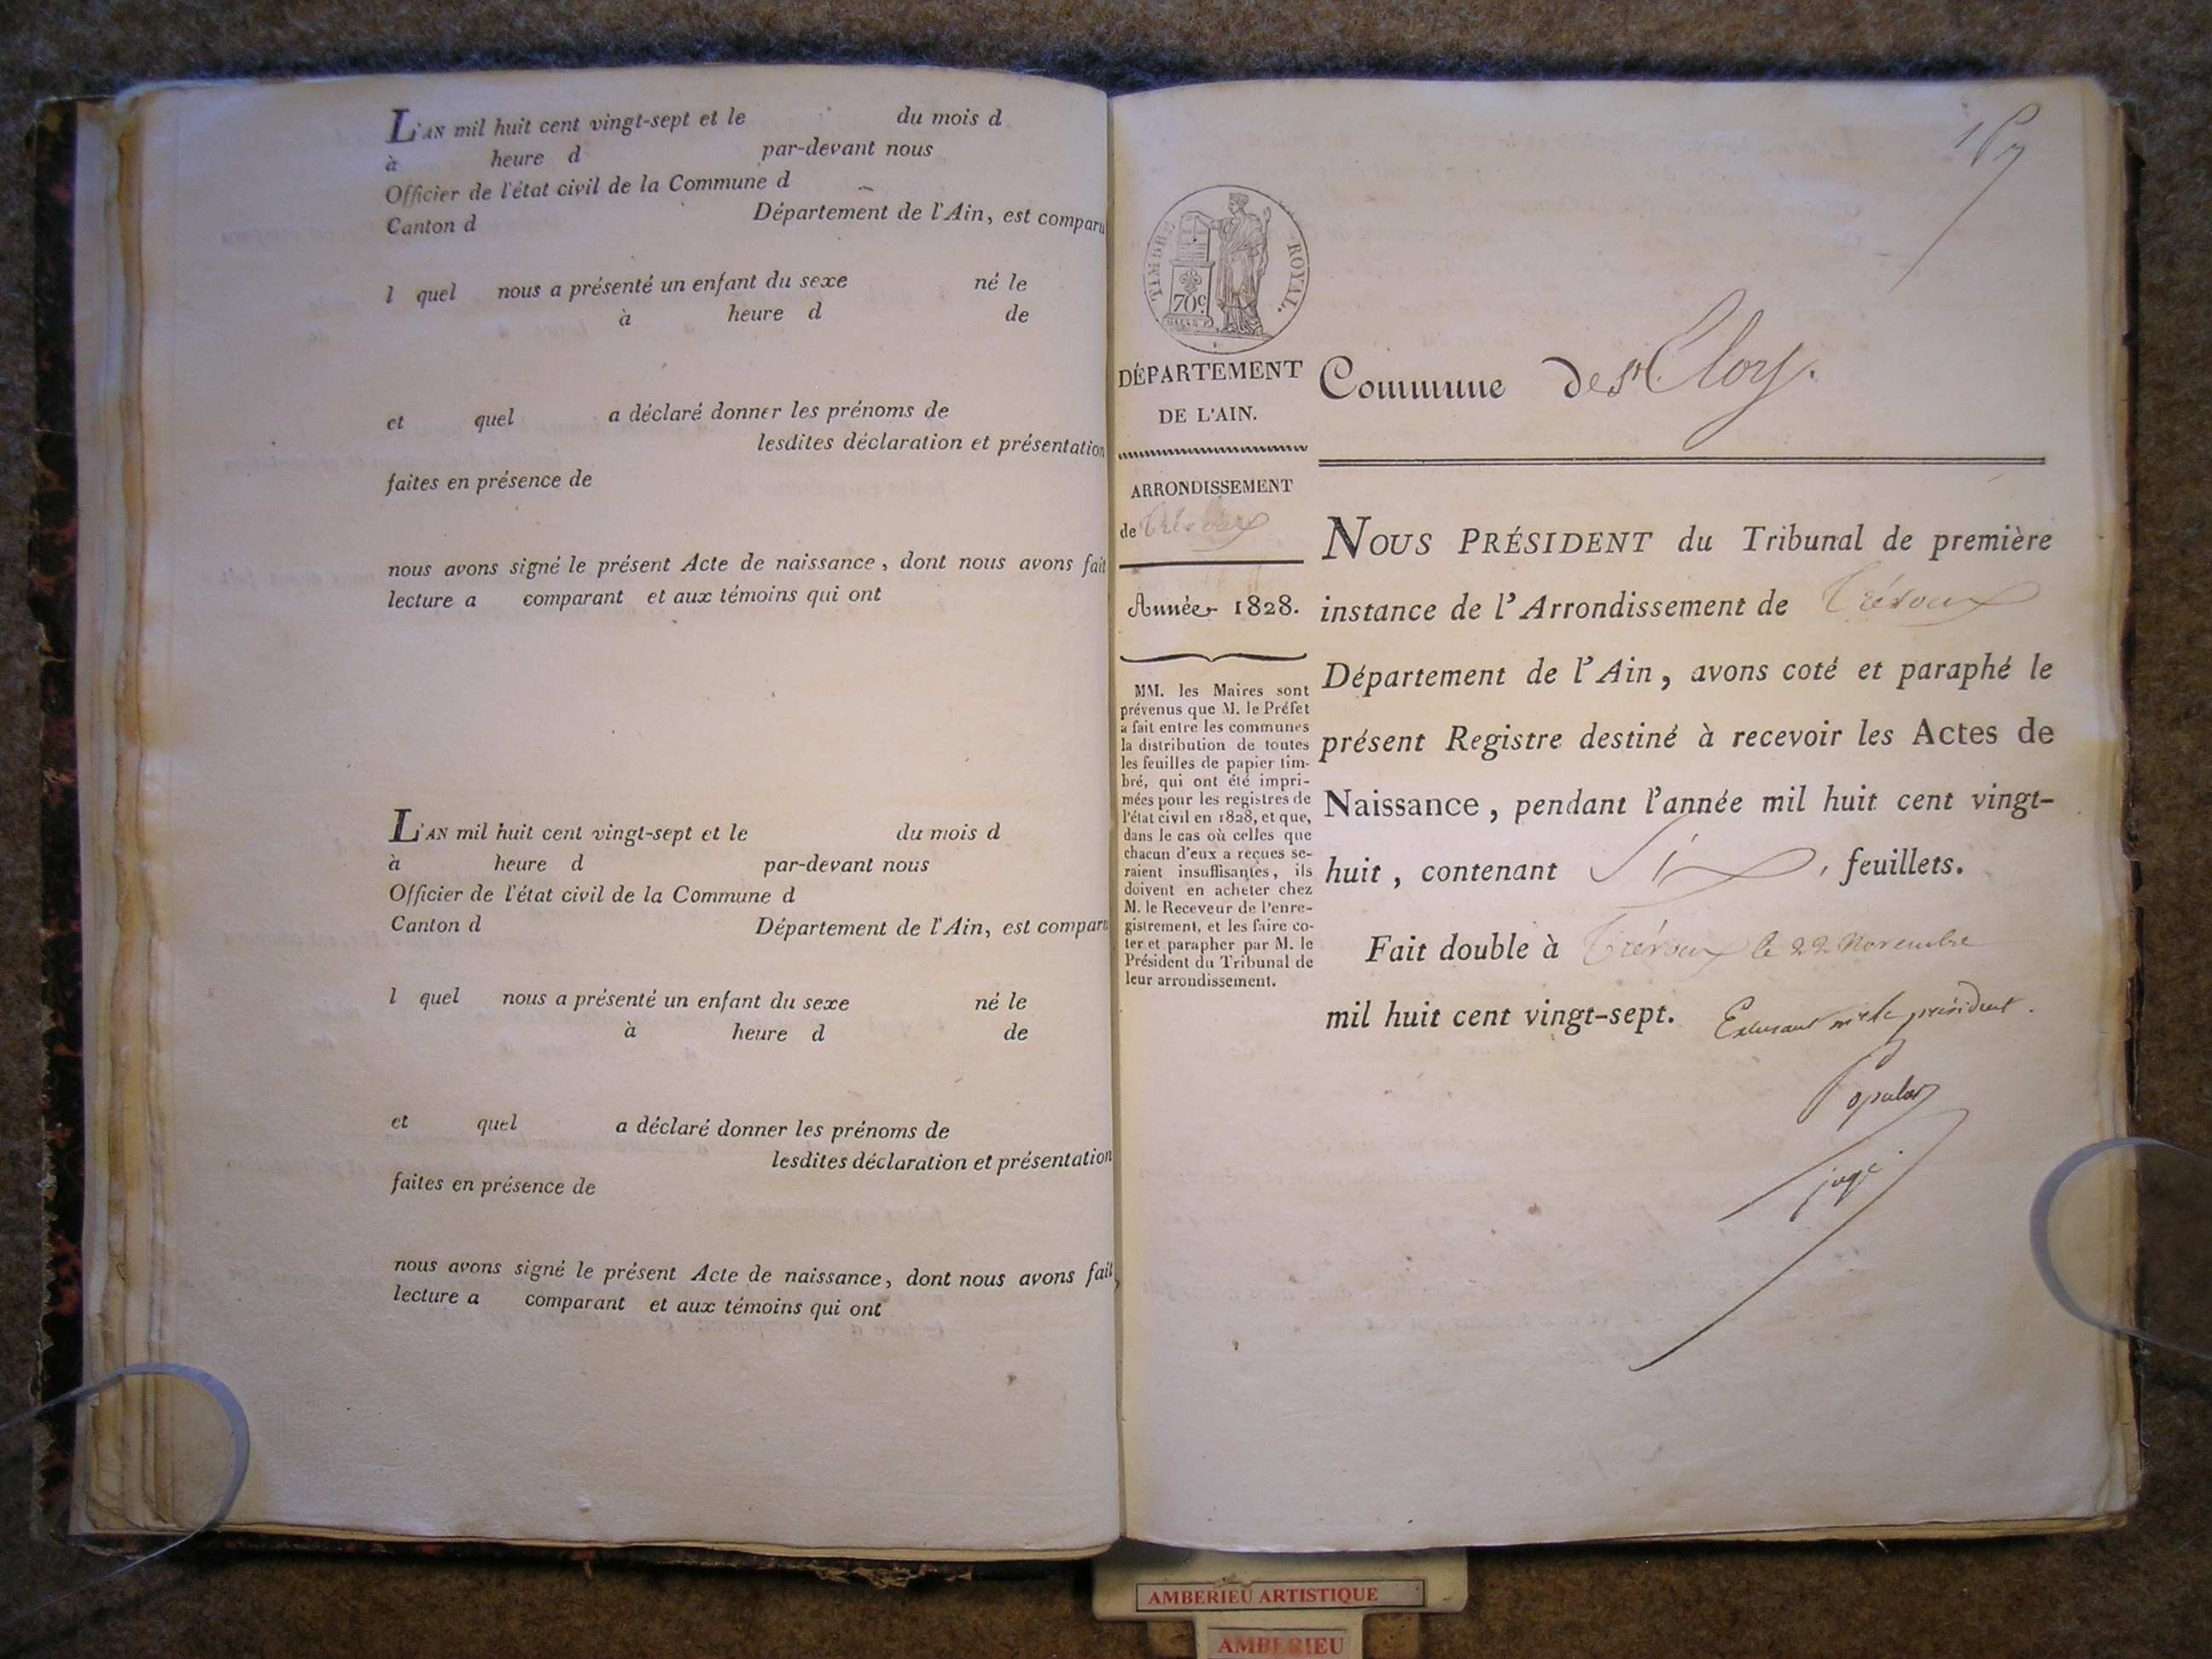 L'AN mil huit cent vingt-sept et le du mois d
à heure d par-devant nous
Officier de l'état civil de la Commune d
Canton d Département de l'Ain, est comparu
l quel nous a présenté un enfant du sexe né le
à heure d de
et quel a déclaré donner les prénoms de
lesdites déclaration et présentation
faites en présence de
nous avons signé le présent Acte de naissance, dont nous avons fait
lecture a comparant et aux témoins qui ont
L'AN mil huit cent vingt-sept et le du mois d
à heure d par-devant nous
Officier de l'état civil de la Commune d
Canton d Département de l'Ain, est comparu
l quel nous a présenté un enfant du sexe né le
à heure d de
et quel a déclaré donner les prénoms de
lesdites déclaration et présentation
faites en présence de
nous avons signé le présent Acte de naissance, dont nous avons fait
lecture a comparant et aux témoins qui ont
TIMBRE ROYAL.
70c
DÉPARTEMENT
DE L'AIN.
ARRONDISSEMENT
de Trévoux
Année 1828.
MM. les Maires sont
prévenus que M. le Préfet
a fait entre les communes
la distribution de toutes
les feuilles de papier tim-
bré, qui ont été impri-
mées pour les registres de
l'état civil en 1828, et que,
dans le cas où celles que
chacun d'eux a reçues se-
raient insuffisantes, ils
doivent en acheter chez
M. le Receveur de l'enre-
gistrement, et les faire co-
ter et parapher par M. le
Président du Tribunal de
leur arrondissement.
Commune de St. Eloy.
NOUS PRÉSIDENT du Tribunal de première
instance de l'Arrondissement de Trévoux
Département de l'Ain, avons coté et paraphé le
présent Registre destiné à recevoir les Actes de
Naissance, pendant l'année mil huit cent vingt-
huit, contenant Six, feuillets.
Fait double à Trévoux le 22 Novembre
mil huit cent vingt-sept. président.
juge
AMBERIEU ARTISTIQUE
AMBERIEU